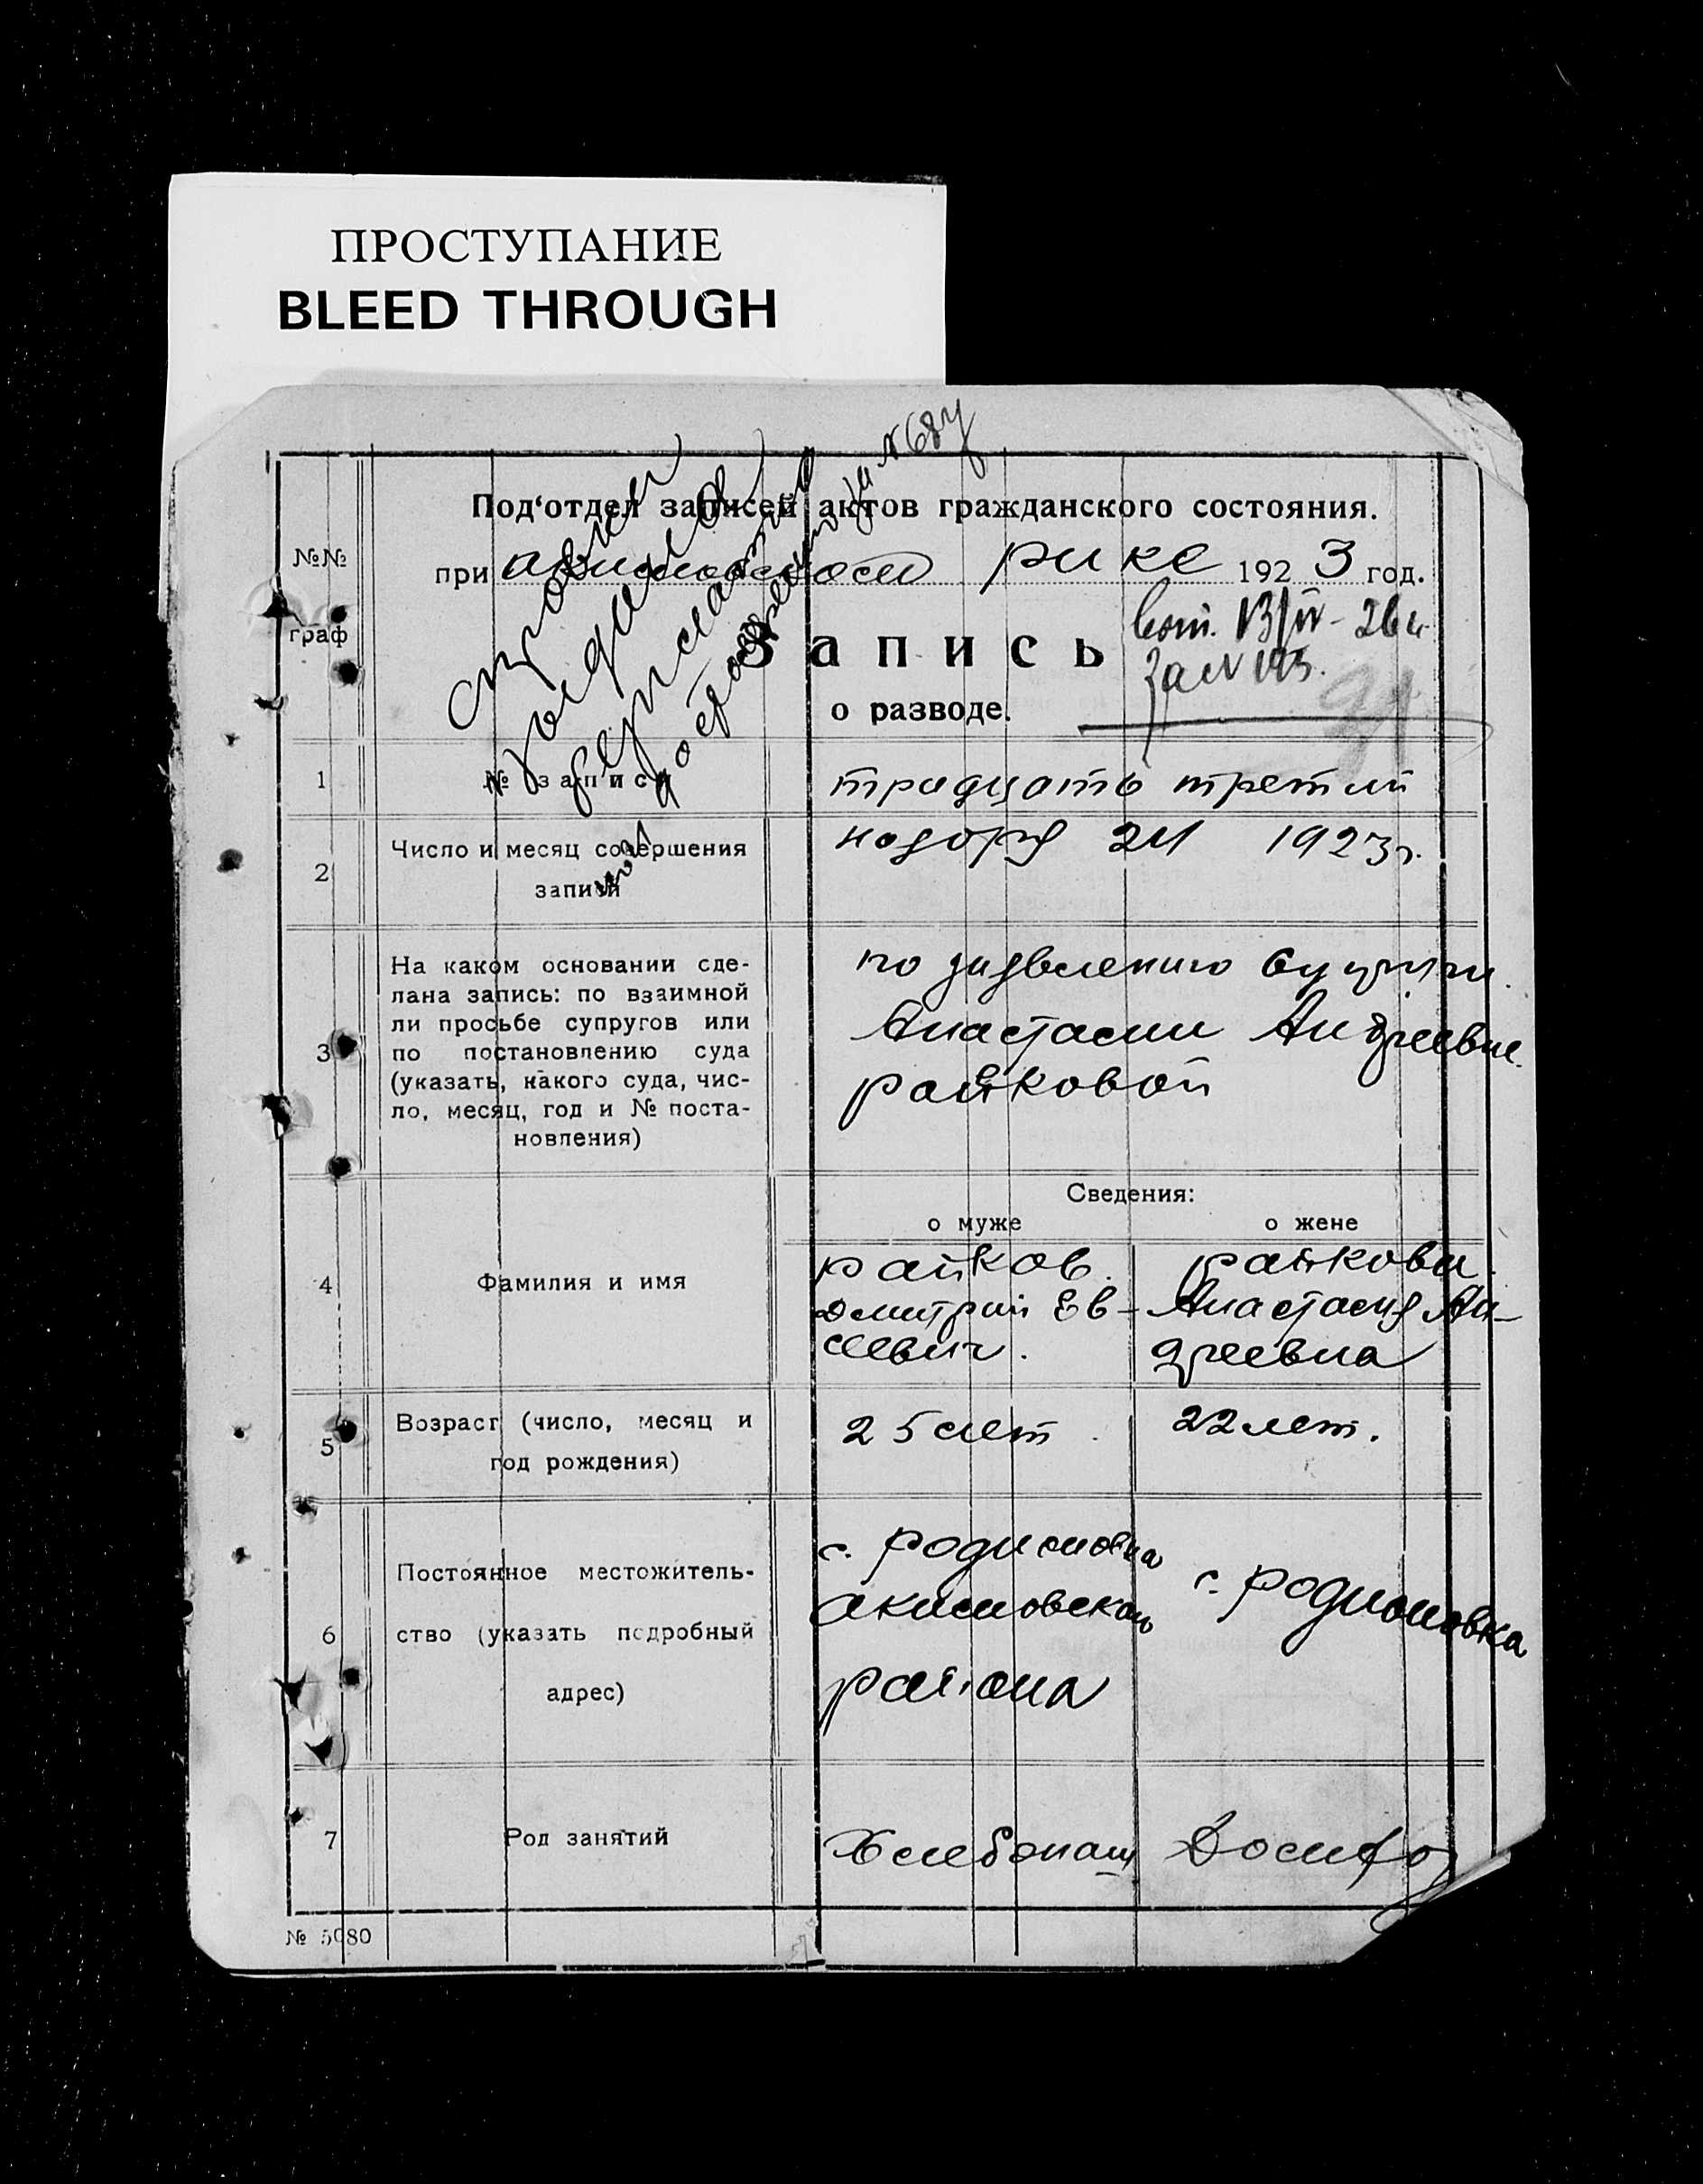 ПРОСТУПАНИЕ
BLEED THROUGH
Под‘отдел записей актов гражданского состояния.
№№
граф
при акимовском рике 1923 год.
Запись
за N 193.
о разводе.
1 № записи тридцать третий
2 Число и месяц совершения записи
ноября 21 1923 г.
3 На каком основании сде-
лана запись: по взаимной
ли просьбе супругов или
по постановлению суда
(указать, какого суда, чис-
ло, месяц, год и № поста-
новления)
по заявлению
Анастасии Андреевне
райковой
Сведения:
о муже о жене
4 Фамилия и имя
райков.
Дмитрий Ев-
сеевич.
райкова.
Анастасия Ан-
дреевна
5 Возраст (число, месяц и
год рождения)
25 лет 22 лет.
6 Постоянное местожитель-
ство (указать подробный
адрес)
с. родионовка
акимовского
района
с. родионовка
7 Род занятий
Хлебопаш
№ 5080